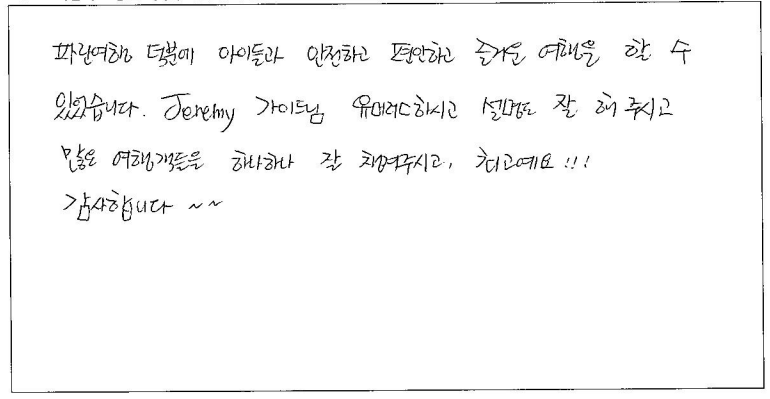 파란여행 덕분에 아이들과 안전하고 편안하고 즐거운 여행을 할 수
있었습니다. Jeremy 가이드님 유머러스하시고 설명도 잘 해 주시고
많은 여행객들을 하나하나 잘 챙겨주시고, 최고예요!!!
감사합니다 ~~